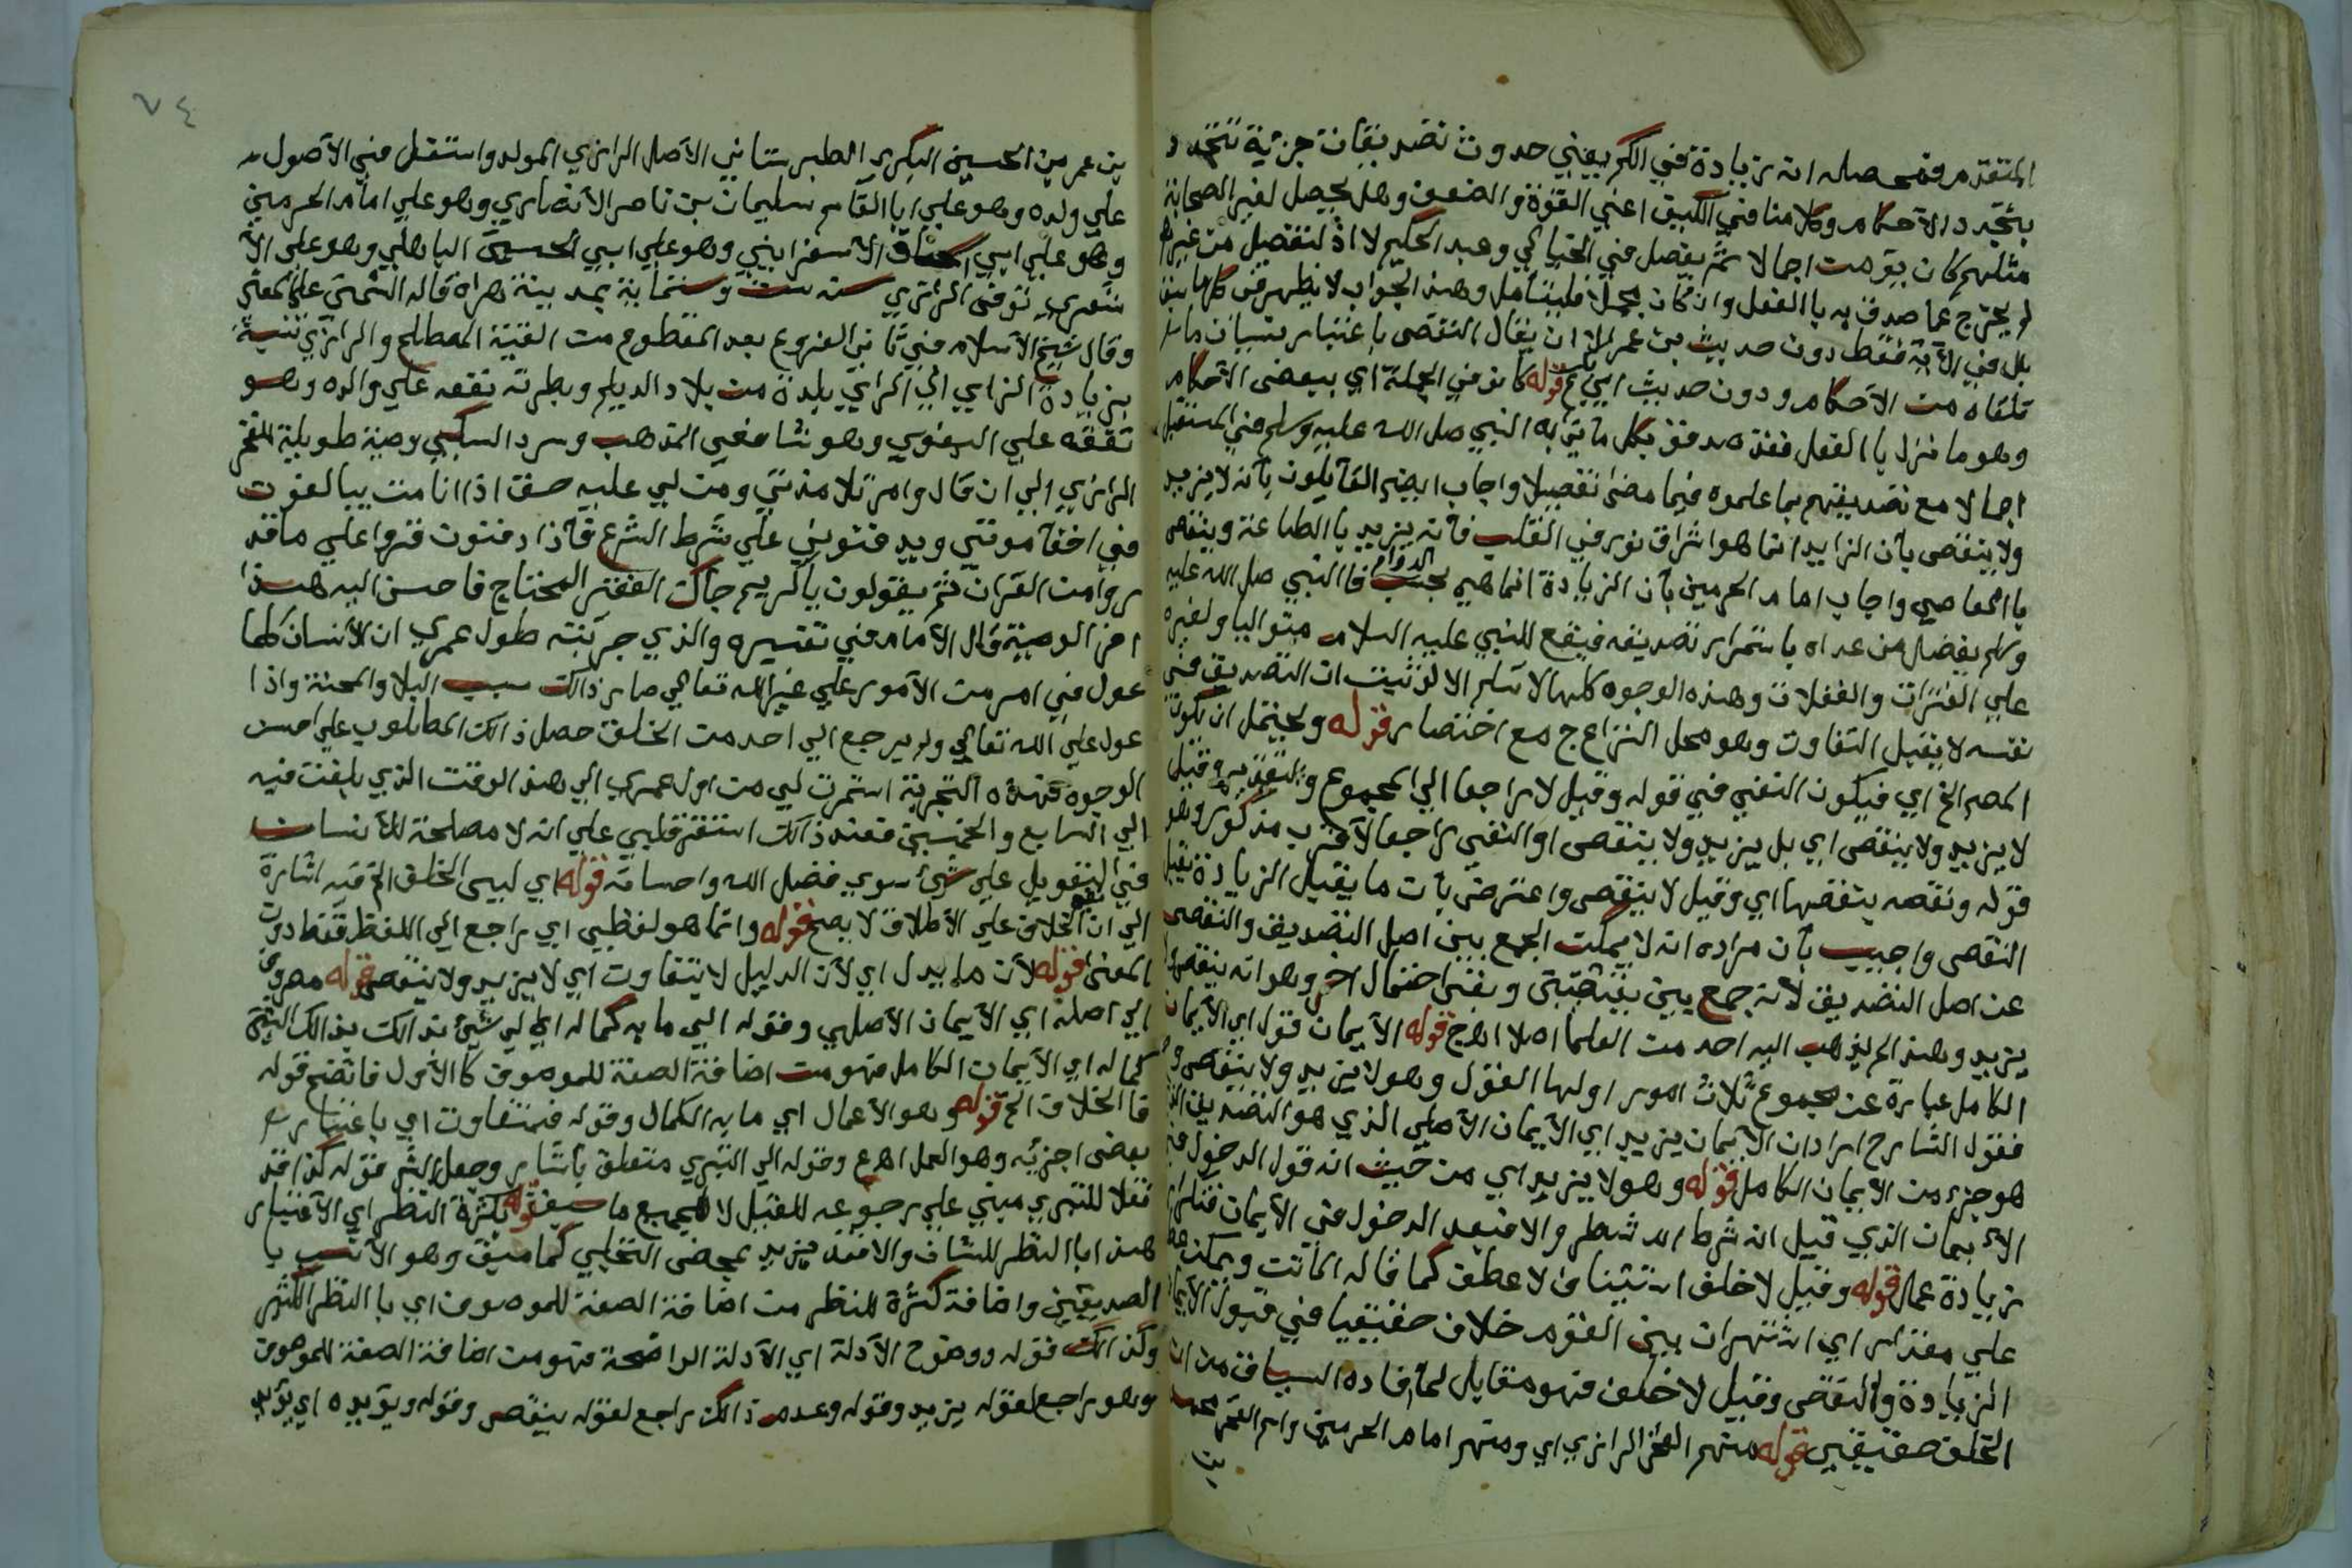 المتقدم فمحصله انه زيادة في الكم يعني حدوث تصديقات جزئية تتجدد
بتجدد الاحكام وكلامنا في الكيف اعني القوة والضعف وهل يحصل لغير الصحابة
مثلهم كان يؤمن اجمالا ثم يفصل في الخيالي وعبد الحكيم لا اذ لتفصيل من غيرهم
لم يخرج عما صدق به بالفعل وان كان مجملا فليتأمل وهذا الجواب لا يظهر في كلها
بل في الآية فقط دون حديث بن عمر الا ان يقال النقص باعتبار نسيان ما
تلقاه من الاحكام ودون حديث ابي بكر قوله كانو في الجملة اي ببعض الاحكام
وهو ما نزل بالفعل فقد صدقو بكل ما يتي به النبي صلى الله عليه وسلم في المستقبل
اجمالا مع تصديقهم بما علموه فيما مضى تفصيلا واجاب ايضا القايلون بأنه لا يزيد
ولا ينقص بأن الزايد انما هو اشراق نور في القلب فأنه يزيد بالطاعة وينقص
بالمعاصي واجاب امام الحرمين بأن الزيادة انما هي بحسب الدوام فالنبي صلى الله عليه
وسلم يفضل من عداه باستمرار تصديقه فيقع للنبي عليه السلام متواليا ولغيره
على الفترات والغفلات وهذه الوجوه كلها لا تسلم الا لو ثبت ان التصديق في
نفسه لا يقبل التفاوت وهو محل النزاع ج مع اختصار قوله ويحتمل ان يكون
المصم الخ اي فيكون النفي في قوله وقيل لا راجعا الي المجموع والتقدير وقيل
لا يزيد ولا ينقص اي بل يزيد ولا ينقص او النفي راجعا لاقرب مذكور وهو
قوله ونقصه بنقصها اي وقيل لا ينقص واعترض بأن ما يقبل الزيادة يقبل
النقص واجيب بأن مراده انه لا يمكن الجمع بين اصل التصديق والنقص
عن اصل التصديق لأنه جمع بين نقيضين وبقي احتمال اخر وهو انه ينقص ولا
يزيد وهذا لم يذهب اليه احد من العلما اصلا اهج قوله الأيمان قوله اي الأيمان
الكامل عبارة عن مجموع ثلاث امور اولها القول وهو لا يزيد ولا ينقص
فقول الشارح اراد ان الأيمان يزيد اي الأيمان الأصلي الذي هو التصديق الذي
هو جزء من الأيمان الكامل قوله وهو لا يزيد اي من حيث انه قول الدخول في
الأيمان الذي قيل انه شرط او شطر والا فبعد الدخول في الأيمان فتكراره
زيادة عمل قوله وقيل لا خلف استئناف لا عطف كما قاله الماتن ويمكن عطفه
علي مقدر اي اشتهر ان بين القوم خلاف حقيقيا في قبول الأيمان
الزيادة والنقص وقيل لا خلف فهو مقابل لما أفاده السياق من ان
الخلف حقيقي قوله منهم الفخر الرازي اي ومنهم امام الحرمين واسم الفخر محمد
بن
٧٤
بن عمر بن الحسين البكري الطبرستاني الأصل الرازي المولد واشتغل في الأصول
علي ولده وهو علي ابا القاسم سليمان بن ناصر الأنصاري وهو علي امام الحرمين
وهو علي ابي اسحاق الأسفرايني وهو علي ابي الحسين الباهلي وهو علي الأ
شعري توفي الرازي سنه ست وستماية بمدينة هراة قاله الشمني علي المغني
وقال شيخ الأسلام في ثاني الفروع بعد المقطوع من الفية المصطلح والرازي نسبة
بزيادة الزاي الي الراي بلدة من بلاد الديلم وبطرته تفقه علي والده وهو
تفقه علي البغوي وهو شافعي المذهب وسرد السكبي وصية طويلة للفخر
الرازي الي ان قال وامر تلامذتي ومن لي عليه حق اذا انا مت يبالغون
في اخفا موتي ويدفنوني علي شرط الشرع فأذا دفنون قروا علي ما قد
روا من القران ثم يقولون يا كريم جاك الفقير المحتاج فاحسن اليه هذا
اخر الوصية قال الأمام في تفسيره والذي جربته طول عمري ان الأنسان كلما
عول في امر من الأمور علي غير الله تعالي صار ذالك سبب البلا والمحنة واذا
عول علي الله تعالي ولم يرجع الي احد من الخلق حصل ذالك المطلوب علي احسن
الوجوه فهذه التجربة استمرت لي من اول عمري الي هذا الوقت الذي بلغت فيه
الي السابع والخمسين فعند ذالك استقر قلبي علي انه لا مصلحة للأنسان
في التعويل علي شيء سوي فضل الله واحسانه قوله اي ليس الخلق الخ فيه اشارة
الي ان نفي الخلاق علي الأطلاق لا يصح قوله وانما هو لفظي اي راجع الي اللفظ فقط دون
المعنى قوله لأن ما يدل اي لأن الدليل لا يتفاوت اي لا يزيد ولا ينقص قوله مصروف
الي اصله اي الأيمان الأصلي وقوله الي ما به كماله اي الي شيئ ذالك بذالك الشيئ
كماله اي الأيمان الكامل فهو من اضافة الصفة للموصوف كالأول فاتضح قوله
فالخلاق الخ قوله وهو الأعمال اي ما به الكمال وقوله فمتفاوت اي باعتبار
بعض اجزئه وهو العمل اهع وقوله الي التبري متعلق باشار وجعل الشر قوله كذا قد
نقلا للتبري مبني علي رجوعه للقبل لا لجميع ما سبق قوله بكثرة النظر اي الأفتيار
هذا اباالنظر للشاف والا فقد يزيد بمحض التخلي كما سبق وهو الأنسب با
الصديقين واضافة كثرة للنظر من اضافة الصفة للموصوف اي باالنظر الكثير
وكذالك قوله ووضوح الأدلة اي الأدلة الواضحة فهو من اضافة الصفة للموصوف
وهو راجع لقوله يزيد وقوله وعدم ذالك راجع لقوله ينقص وقوله ويؤيده اي يؤيد